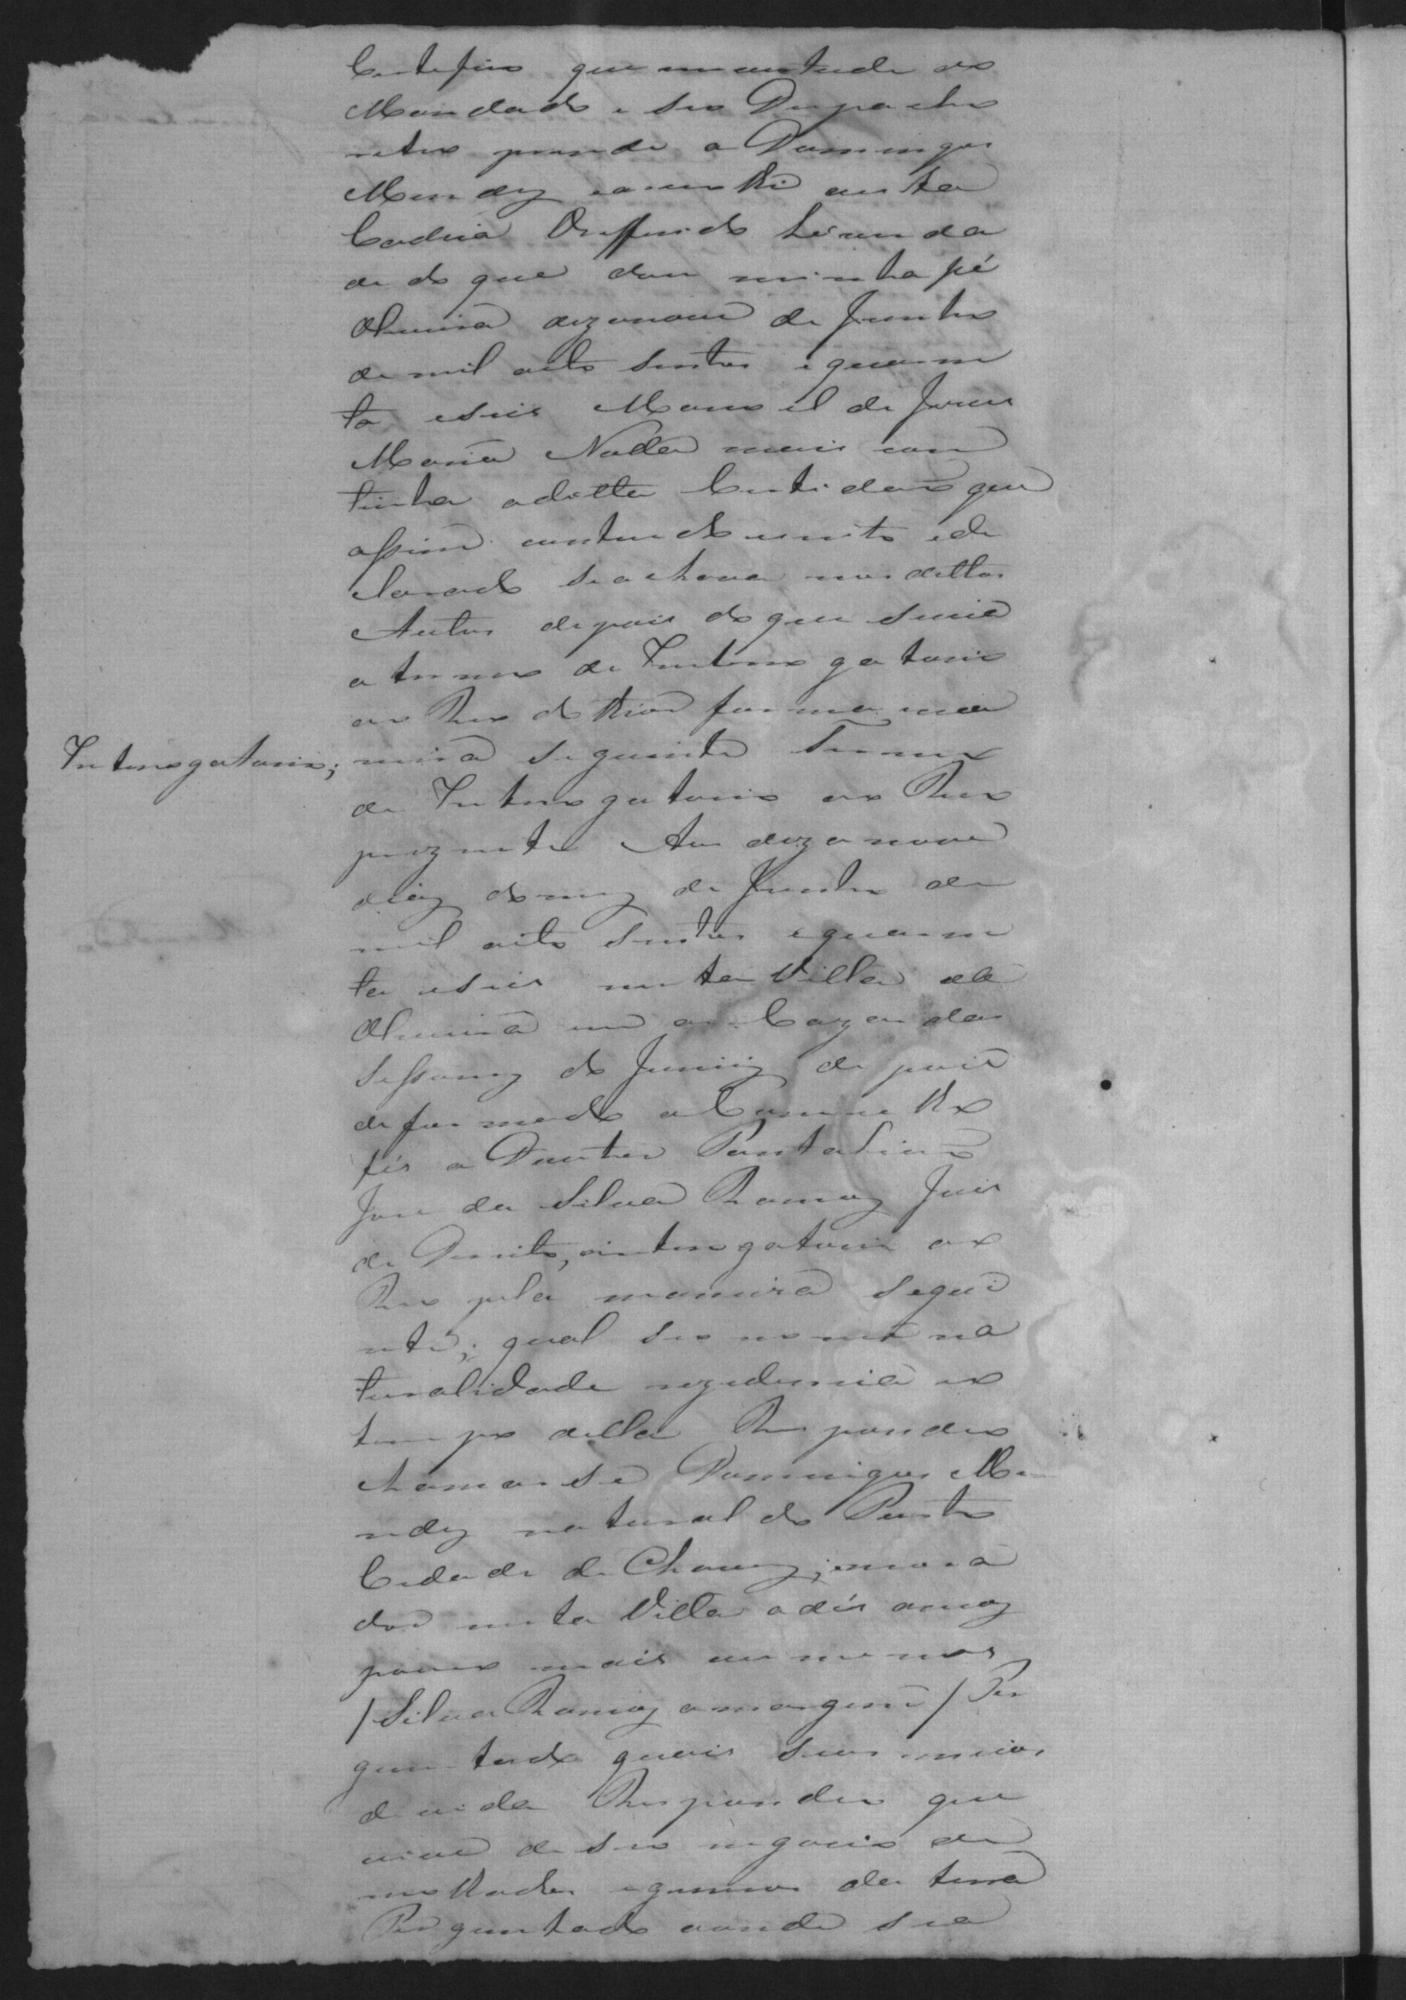 Certefico que em virtude do
Mandado e seo Despacho
retro prendi a Domingos
Mendez e o recolhi a esta
Cadeia O refferido he verda
de do que dou minha fé
Oeiras dezanove de Junho
de mil oito sentos e quaren
ta e seis Manoel de Jezus
Maria Nada mais con
tinha a ditta Certidaõ que
assim contendo escrito e de
clarado se achava nos dittos
Autos depois do que se via
o termo de Interrogatorio
ao Reo do theor forma e ma
Interrogatorio; neira seguinte Termo
de Interrogatorio ao Reo
prezente Aos dezanove
diaz do mez de Junho de
mil oito sentos e quaren
ta e seis nesta Villa de
Oeiras em as Cazas das
Sessoenz do Juri depois
de formado o Concelho
fes o Doutor Pantaliaõ
Joze da Silva Ramoz Juis
de Direito, o interrogatorio ao
Reo pela maneira segui
nte; qual seo nome na
turalidade rezidencia e o
tempo della Respondeo
chamar se Domingos Me
ndez natural do Porto
Cidade de Chavez; e mora
dor nesta Villa a dés annoz
pouco mais ou menos
/ Silva Ramoz a margem / Per
guntado quais seos meios
de vida Respondeo que
vive de seo negocio de
molhados e generos da terra
Perguntado aonde se a